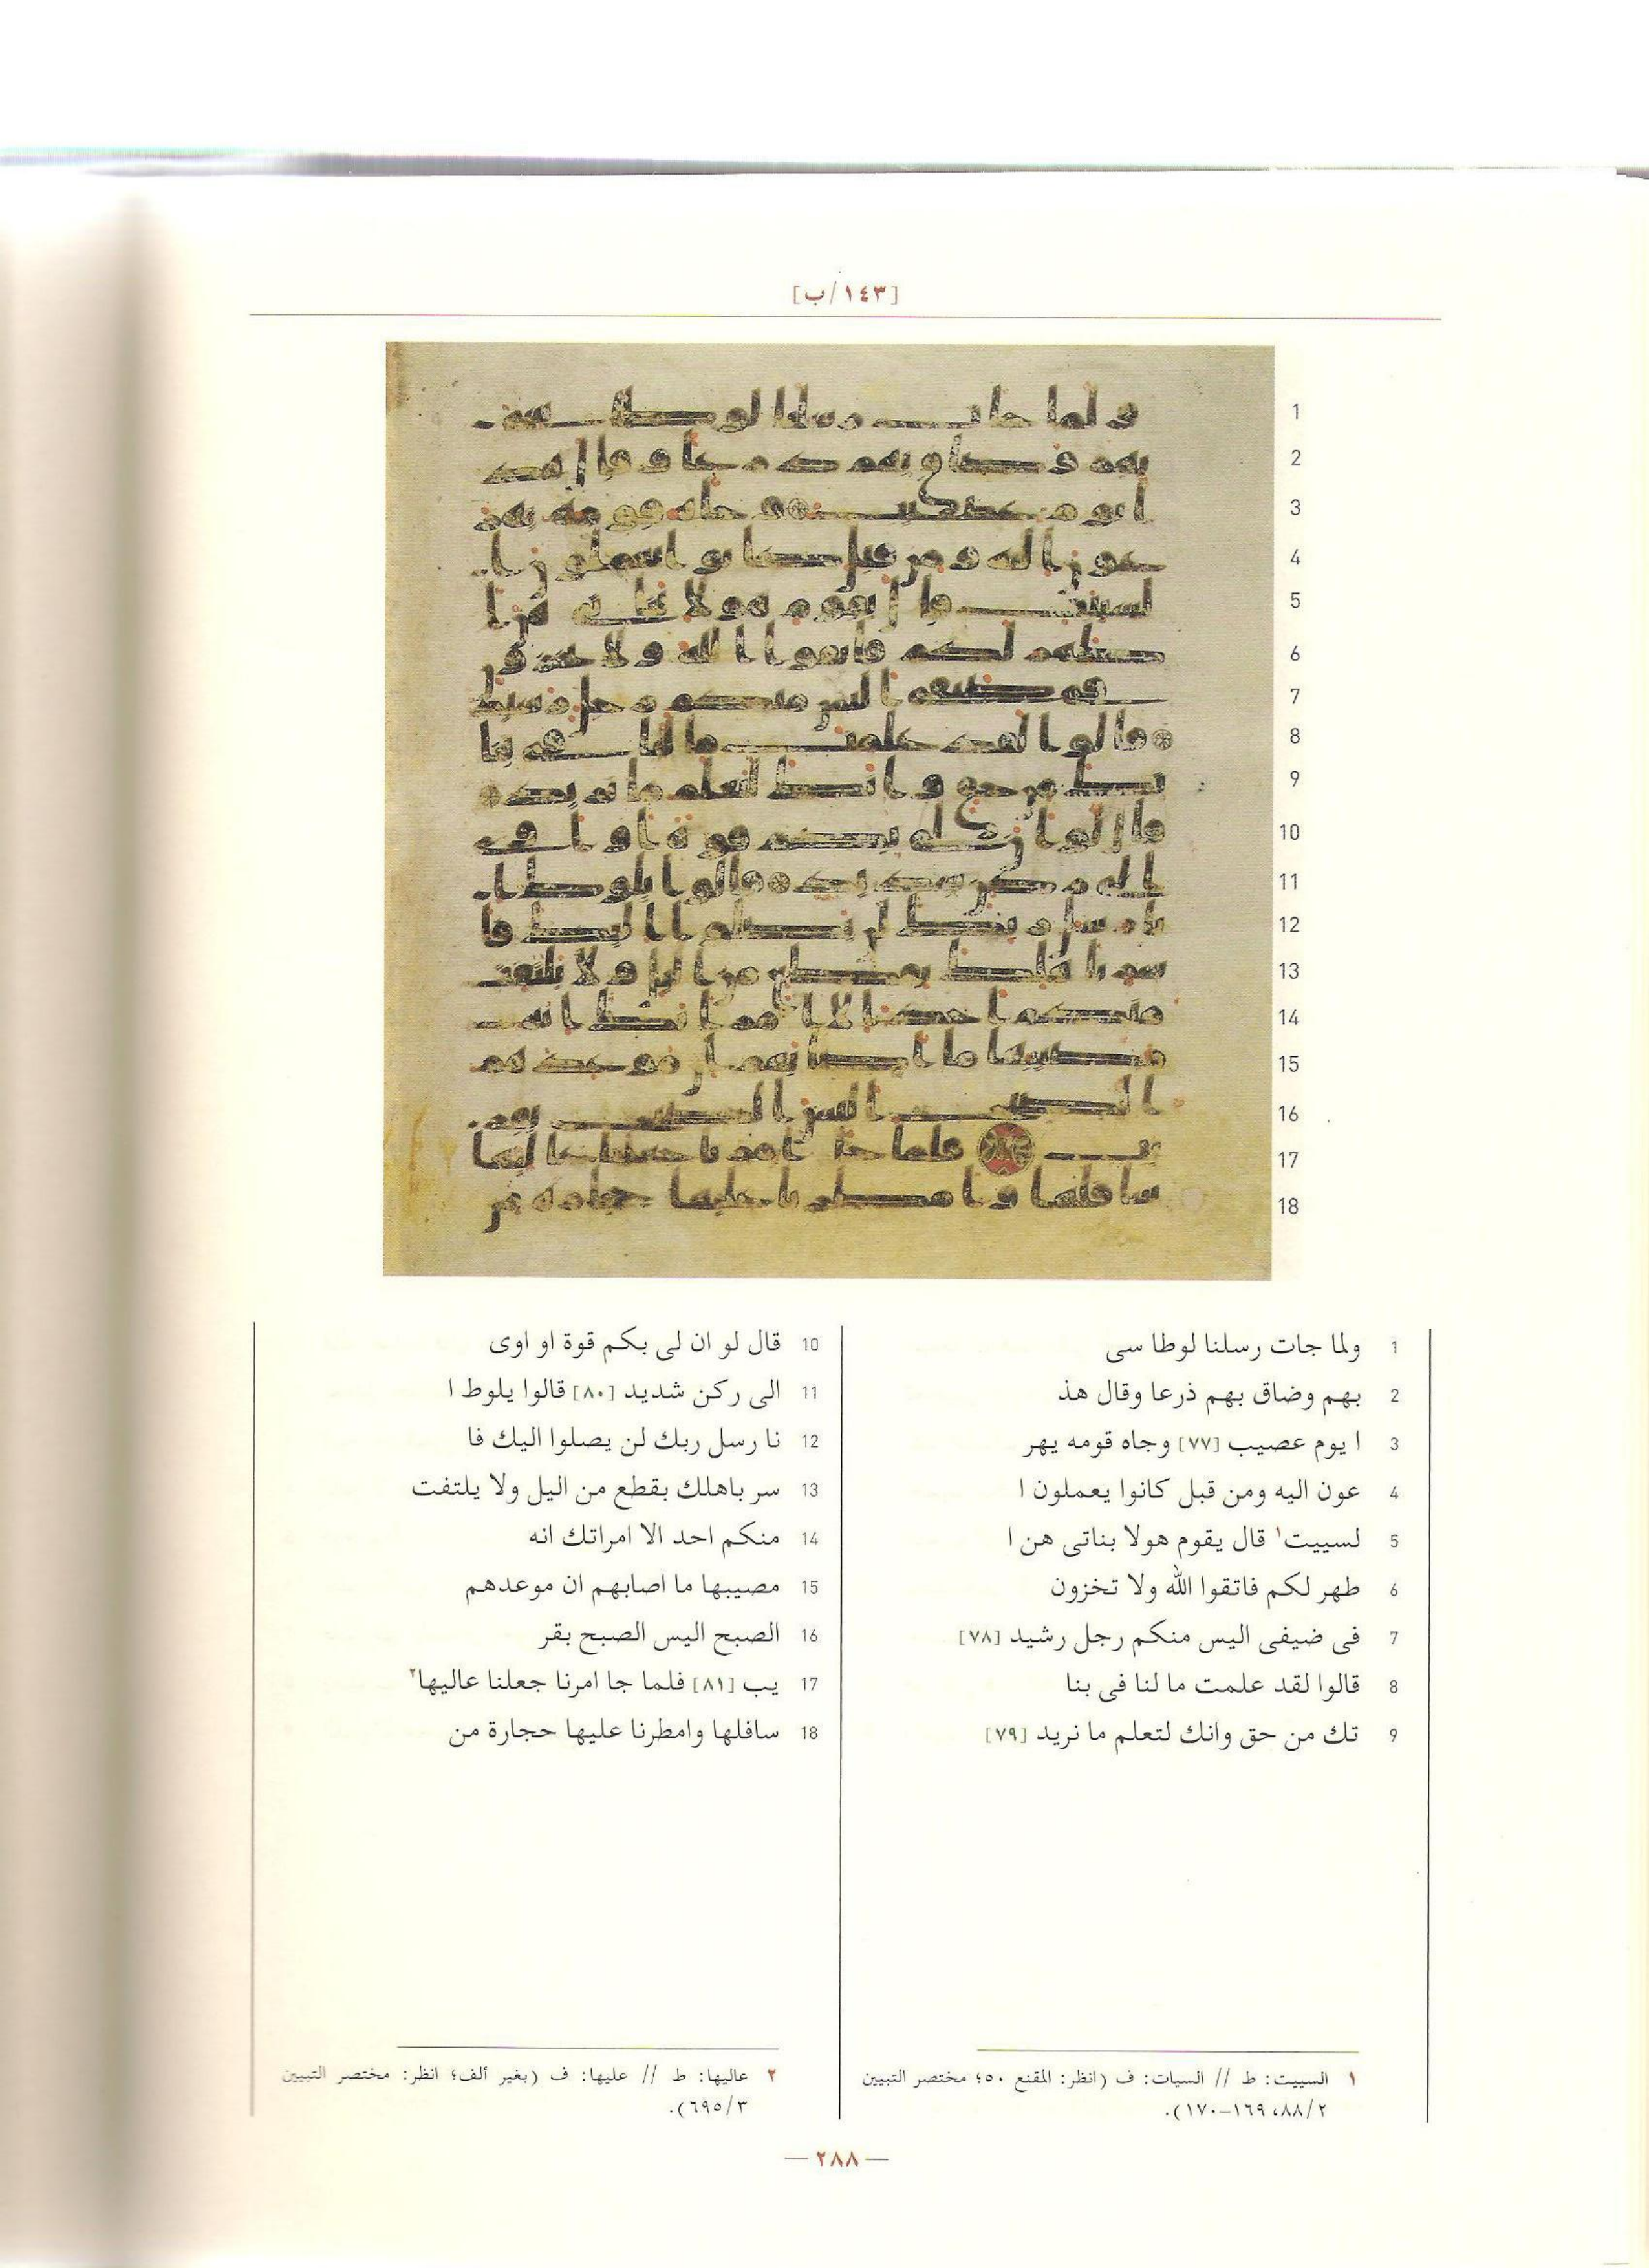 [١٤٣/ب]
1
2
3
4
5
6
7
8
9
10
11
12
13
14
15
16
17
18
1 ولما جات رسلنا لوطا سى
2 بهم وضاق بهم ذرعا وقال هذ
3 ا يوم عصيب [٧٧] وجاه قومه يهر
4 عون اليه ومن قبل كانوا يعملون ا
5 لسييت١ قال يقوم هولا بناتى هن ا
6 طهر لكم فاتقوا الله ولا تخزون
7 فى ضيفى اليس منكم رجل رشيد [٧٨]
8 قالوا لقد علمت ما لنا فى بنا
9 تك من حق وانك لتعلم ما نريد [٧٩]
10 قال لو ان لى بكم قوة او اوى
11 الى ركن شديد [٨٠] قالوا يلوط ا
12 نا رسل ربك لن يصلوا اليك فا
13 سر باهلك بقطع من اليل ولا يلتفت
14 منكم احد الا امراتك انه
15 مصيبها ما اصابهم ان موعدهم
16 الصبح اليس الصبح بقر
17 يب [٨١] فلما جا امرنا جعلنا عاليها٢
18 سافلها وامطرنا عليها حجارة من
١ السييت: ط // السيات: ف (انظر: المقنع ٥٠؛ مختصر التبيين
٢/٨٨، ١٦٩–١٧٠).
٢ عاليها: ط // عليها: ف (بغير ألف؛ انظر: مختصر التبيين
٣/٦٩٥).
— ٢٨٨ —